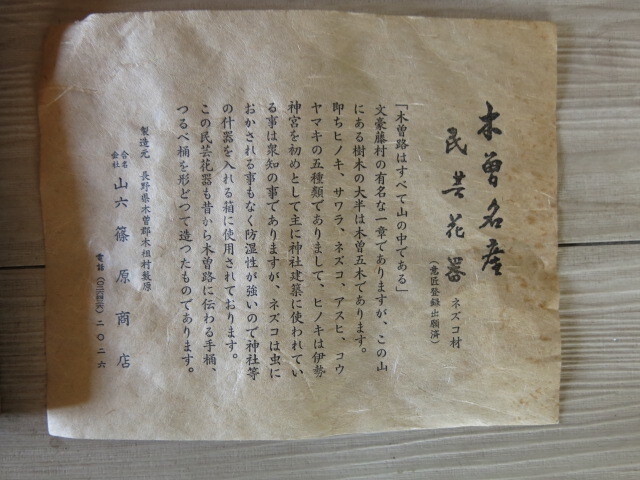 木曽名産
民芸花器 ネズコ材
(意匠登録出願済)
「木曽路はすべて山の中である」
文豪藤村の有名な一章でありますが、この山
にある樹木の大半は木曽五木であります。
即ちヒノキ、サワラ、ネズコ、アスヒ、コウ
ヤマキの五種類でありまして、ヒノキは伊勢
神宮を初めとして主に神社建築に使われてい
る事は衆知の事でありますが、ネズコは虫に
おかされる事もなく防湿性が強いので神社等
の什器を入れる箱に使用されております。
この民芸花器も昔から木曽路に伝わる手桶、
つるべ桶を形どつて造つたものであります。
製造元 長野県木曽郡木祖村薮原
合名会社 山六篠原商店
電話 二〇二六